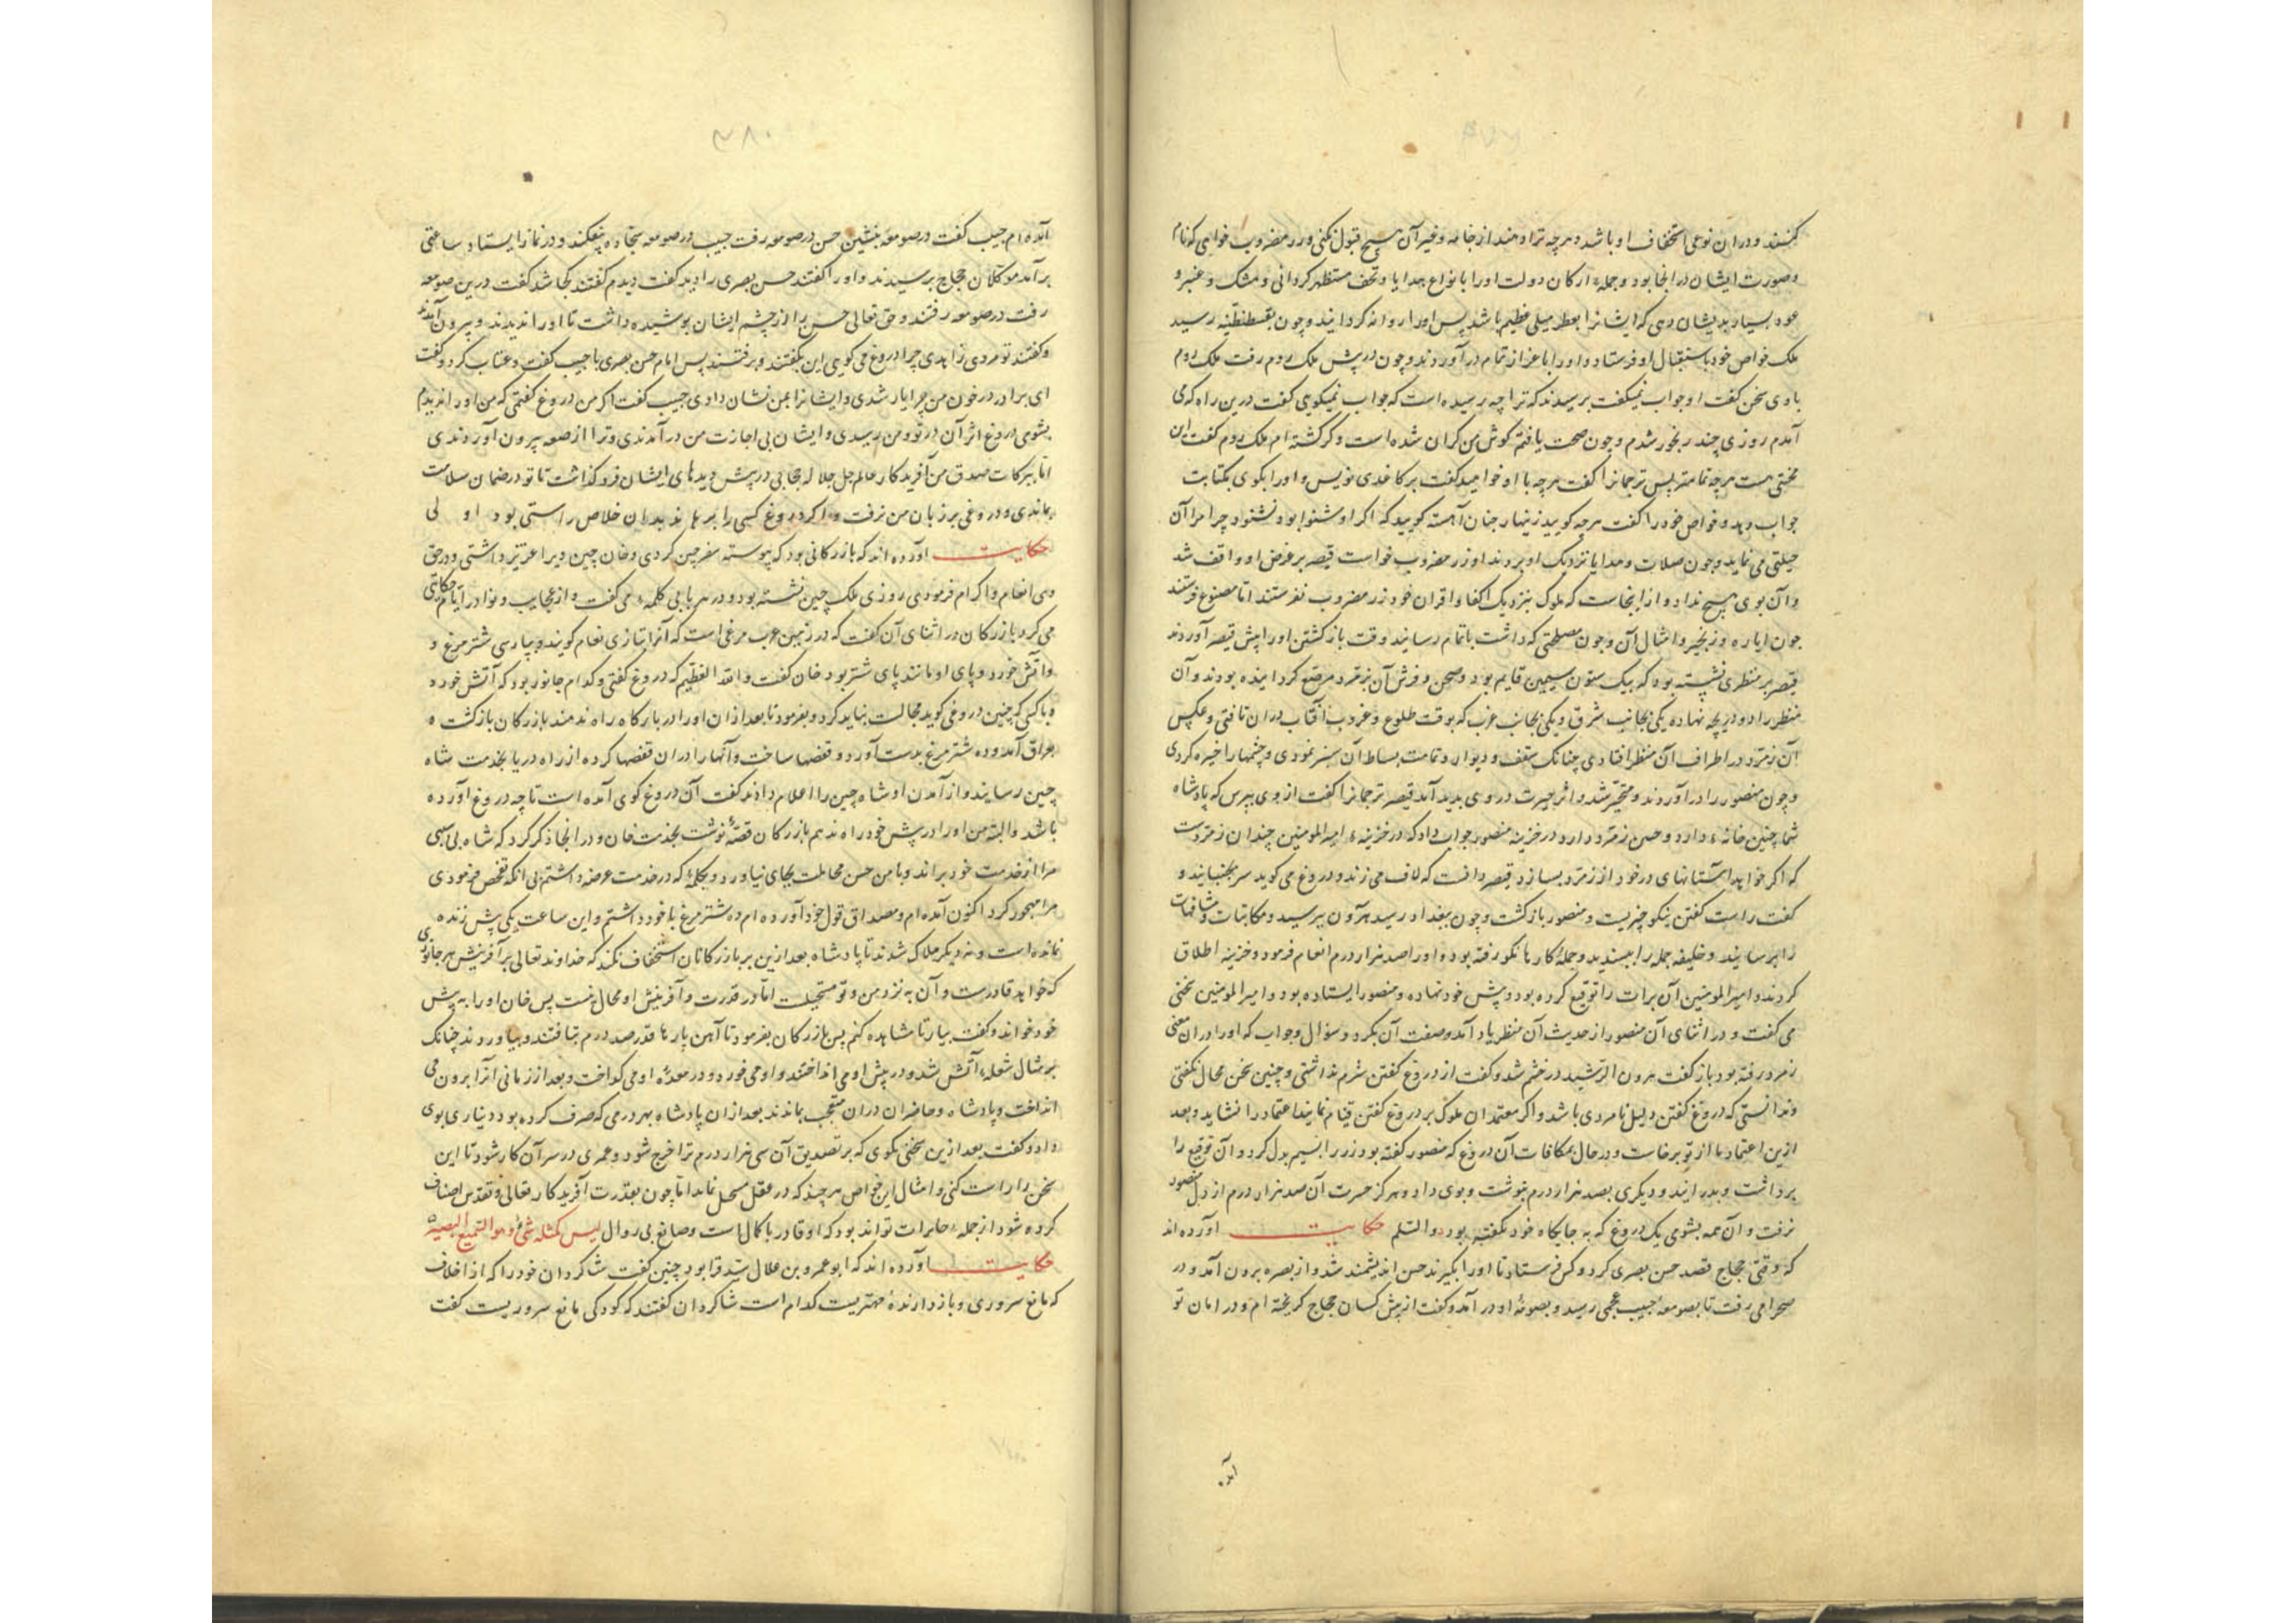 کنند و در ان نوعی استخفاف او باشد و هرچه ترا دهند از جامه و غیر آن هیچ قبول نکنی و زر مضروب خواهی که نام
و صورت ایشان در انجا بود و جمله ارکان دولت او را بانواع هدایا و تحف مستظهر کردانی و مشک و عنبر و
عود بسیار بدیشان دهی که ایشانرا بعطر میلی عظیم باشد پس او را روانه کردانیدند و چون بقسطنطنیه رسید
ملک خواص خود باستقبال او فرستاد و او را باعزاز تمام در آوردند و چون در پیش ملک روم رفت ملک روم
با وی سخن کفت او جواب نمیکفت پرسیدند که ترا چه رسیده است که جواب نمیکویی کفت درین راه که می
آمدم روزی چند رنجور شدم و چون صحت یافتم کوش من کران شده است و کر کشته ام ملک روم کفت این
محنتی هست هرچه تمامتر پس ترجمانرا کفت هرچه با او خواهید کفت بر کاغدی نویس و او را بکوی بکتابت
جواب دهد و خواص خود را کفت هرچه کویید زینهار چنان آهسته کویید که اکر او شنوا بود نشنود چرا مرا آن
حیلتی می نماید و چون صلات و هدایا نزدیک او بردند او زر مضروب خواست قیصر بر غرض او واقف شد
و آن بوی هیچ نداد و از اینجاست که ملوک بنزدیک اکفا و اقران خود زر مضروب نفرستند اما مصنوع فرستند
چون ایاره و زنجیر و امثال آن و چون مصلحتی که داشت باتمام رسانید وقت باز کشتن او را پیش قیصر آوردند
قیصر بر منظری نشسته بود که بیک ستون سیمین قایم بود و صحن و فرش آن بزمرد مرصع کردانیده بودند و آن
منظر را دو دریچه نهاده یکی بجانب شرق و یکی بجانب غرب که بوقت طلوع و غروب آفتاب در ان تافتی و عکس
آن زمرد در اطراف آن منظر افتادی چنانک سقف و دیوار و تمامت بساط آن سبز نمودی و چشمها را خیره کردی
و چون منصور را در آوردند و متحیر شد و اثر حیرت در وی بدید آمد قیصر ترجمانرا کفت از وی بپرس که پادشاه
شما چنین خانهء دارد و جنس زمرد دارد در خزینه منصور جواب داد که در خزینهء امیر المومنین چندان زمردست
که اکر خواهد آستانهای در خود از زمرد بسازد قیصر دانست که لاف می زند و دروغ می کوید سر بجنبانید و
کفت راست کفتن نیکو چیزیست و منصور باز کشت و چون ببغداد رسید هرون بپرسید و مکاتبات و مشافهات
را برسانید و خلیفه جمله را بپسندید و جملهٔ کارها نکو رفته بود و او را صد هزار درم انعام فرمود و خزینه اطلاق
کردند و امیر المومنین آن برات را توقیع کرده بود و پیش خود نهاده و منصور ایستاده بود و امیر المومنین سخنی
می کفت و در اثنای آن منصور از حدیث آن منظر یاد آمد و صفت آن بکرد و سؤال و جواب که او را در ان معنی
زمرد رفته بود باز کفت هرون الرشید در خشم شد و کفت از دروغ کفتن شرم نداشتی و چنین سخن محال بکفتی
و ندانستی که دروغ کفتن دلیل نامردی باشد و اکر معتمدان ملوک بر دروغ کفتن قیام نمایند اعتماد را نشاید و بعد
ازین اعتماد ما از تو برخاست و در حال بمکافات آن دروغ که منصور کفته بود زر را بسیم بدل کرد و آن توقیع را
برداشت و بدرانید و دیکری بصد هزار درم نبوشت و بوی داد و هرکز حسرت آن صد هزار درم از دل منصور
نرفت و آن همه بشومی یک دروغ که به جایکاه خود نکفته بود والسلم حکایت آورده اند
که وقتی حجاج قصد حسن بصری کرد و کس فرستاد تا او را بکیرند حسن اندیشمند شد و از بصره برون آمد و در
صحرا می رفت تا بصومعهٔ حبیب عجمی رسید و بصومعهٔ او در آمد و کفت از پیش کسان حجاج کریخته ام و در امان تو
آمده
۳۸۰
آمده ام حبیب کفت در صومعه بنشین حسن در صومعه رفت حبیب در صومعه سجاده بیفکند و در نماز ایستاد ساعتی
برآمد موکلان حجاج برسیدند و او را کفتند حسن بصری را دید کفت دیدم کفتند کجا شد کفت درین صومعه
رفت در صومعه رفتند و حق تعالی حسن را از چشم ایشان پوشیده داشت تا او را ندیدند و بیرون آمدند
و کفتند تو مردی زاهدی چرا دروغ می کویی این بکفتند و برفتند پس امام حسن بصری با حبیب کفت و عتاب کرد و کفت
ای برادر در خون من چرا یار شدی و ایشانرا بمن نشان دادی حبیب کفت اکر من دروغ کفتمی که من او را ندیدم
بشومی دروغ اثر آن در تو و من رسیدی و ایشان بی اجازت من در آمدندی و ترا از صومعه بیرون آوردندی
اما ببرکات صدق من آفریدکار عالم جل جلاله حجابی در پیش دیدهای ایشان فرو کذاشت تا تو در ضمان سلامت
بماندی و دروغی بر زبان من نرفت و اکر دروغ کسی را برهاند بدان خلاص راستی بود اولی
حکایت آورده اند که بازرکانی بود که پیوسته سفر چین کردی و خان چین ویرا عزیز داشتی و در حق
وی انعام و اکرام فرمودی روزی ملک چین نشسته بود و در هر بابی کلمهء می کفت و از عجایب و نوادر ایام حکایتی
می کرد بازرکان در اثنای آن کفت که در زمین عرب مرغی است که آنرا بتازی نعام کویند و بپارسی شترمرغ و
و آتش خورد و پای او مانند پای شتر بود خان کفت والله العظیم که دروغ کفتی و کدام جانور بود که آتش خورد
و با کسی که چنین دروغی کوید مجالست نباید کرد و بفرمود تا بعد از ان او را در بارکاه راه ندهند بازرکان باز کشت و
بعراق آمد و ده شترمرغ بدست آورد و قفصها ساخت و آنها را در ان قفصها کرده از راه دریا بخدمت شاه
چین رسانید و از آمدن او شاه چین را اعلام دادند کفت آن دروغ کوی آمده است تا چه دروغ آورده
باشد والبته من او را در پیش خود راه ندهم بازرکان قصهٔ نوشت بخدمت خان و در انجا ذکر کرد که شاه بی سببی
مرا از خدمت خود براند و با من حسن مجاملت بجای نیاورد و بکلمهٔ که در خدمت عرضه داشتم بی انکه تفحص فرمودی
مرا مهجور کرد اکنون آمده ام و مصداق قول خود آورده ام ده شترمرغ با خود داشتم و این ساعت یکی بیش زنده
نمانده است و نه دیکر هلاک شدند تا پادشاه بعد ازین بر بازرکانان استخفاف نکند که خداوند تعالی بر آفرینش هر جانوری
که خواهد قادرست و آن به نزد من و تو مستحیلست اما در قدرت و آفرینش او محال نیست پس خان او را به پیش
خود خواند و کفت بیار تا مشاهده کنم پس بازرکان بفرمود تا آهن پارها قدر صد درم بتافتند و بیاوردند چنانک
بر مثال شعلهء آتش شد و در پیش او می انداختند و او می خورد و در معدهٔ او می کداخت و بعد از زمانی آنرا برون می
انداخت و پادشاه و حاضران در ان متعجب بماندند بعد از ان پادشاه بهر درمی که صرف کرده بود دیناری بوی
داد و کفت بعد ازین سخنی مکوی که بر تصدیق آن سی هزار درم ترا خرج شود و عمری در سر آن کار شود تا این
سخن را راست کنی و امثال این خواص هرچند که در عقل مستحیل نماید اما چون بقدرت آفریدکار تعالی و تقدس اضافت
کرده شود از جملهء جایزات تواند بود که او قادر با کمال است و صانع بی زوال لیس کمثله شیٔ و هو السمیع البصیر
حکایت آورده اند که ابو عمرو بن علا که سید قرا بود چنین کفت شاکردان خود را که از اخلاف
که مانع سروری و بازدارندهٔ مهتریست کدام است شاکردان کفتند که کودکی مانع سروریست کفت